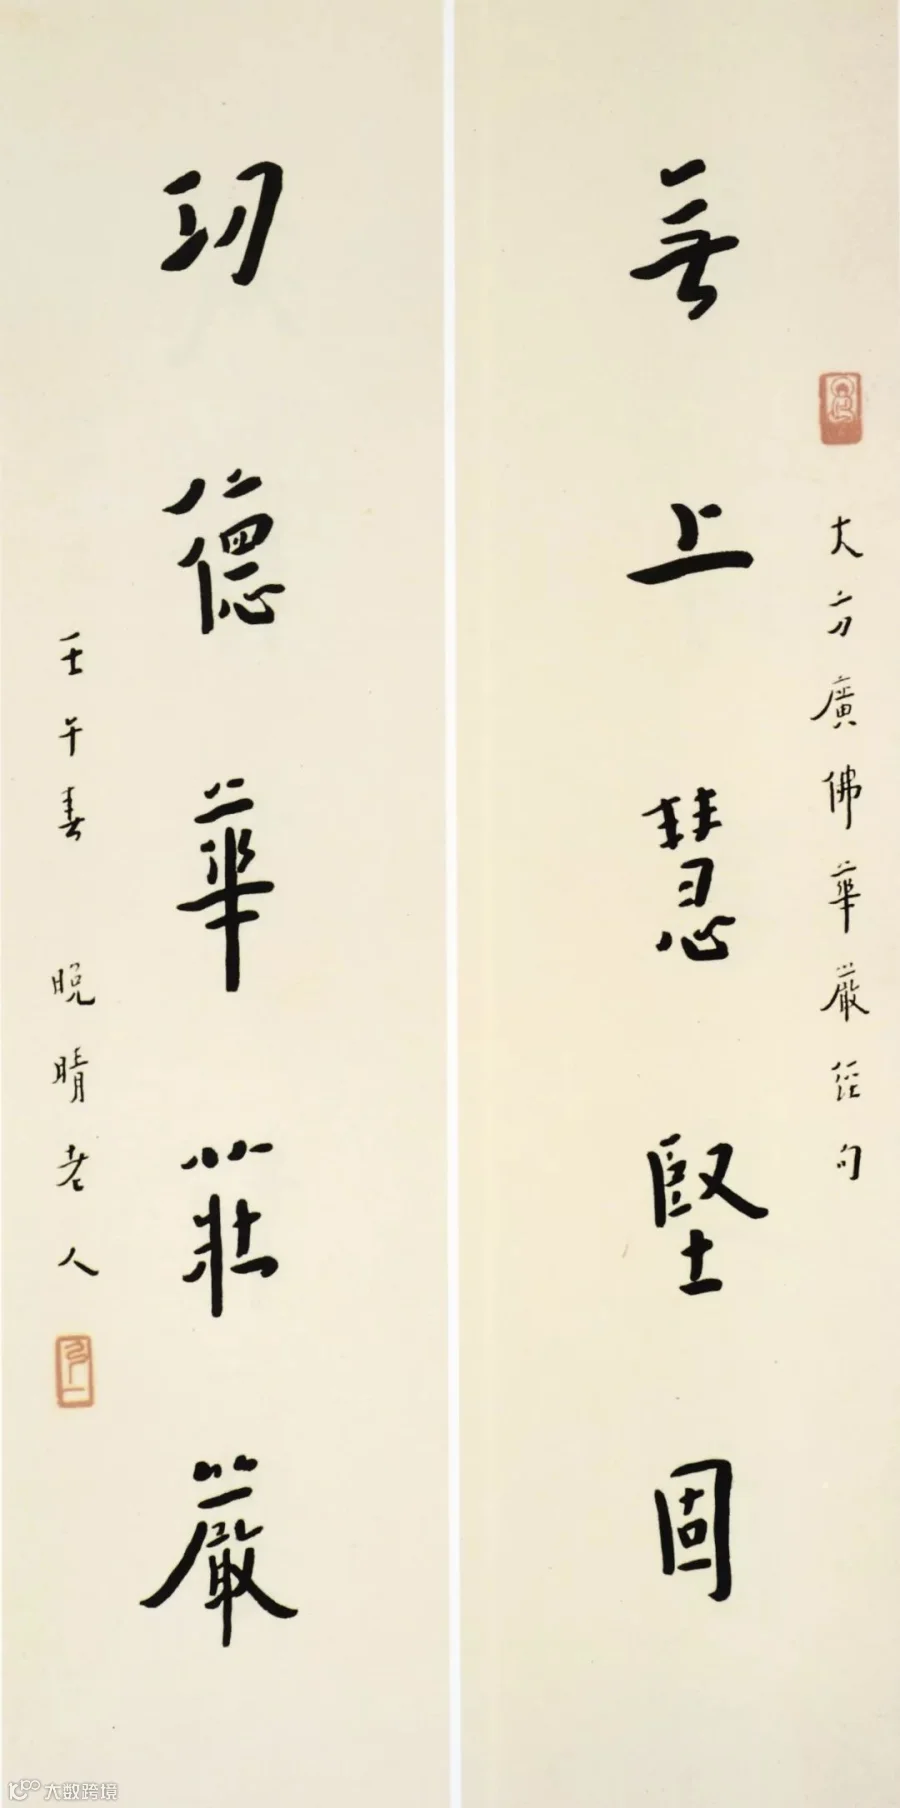 大方廣佛華嚴經句
無上慧堅固
功德華莊嚴
壬午春 晚晴老人
大数跨境